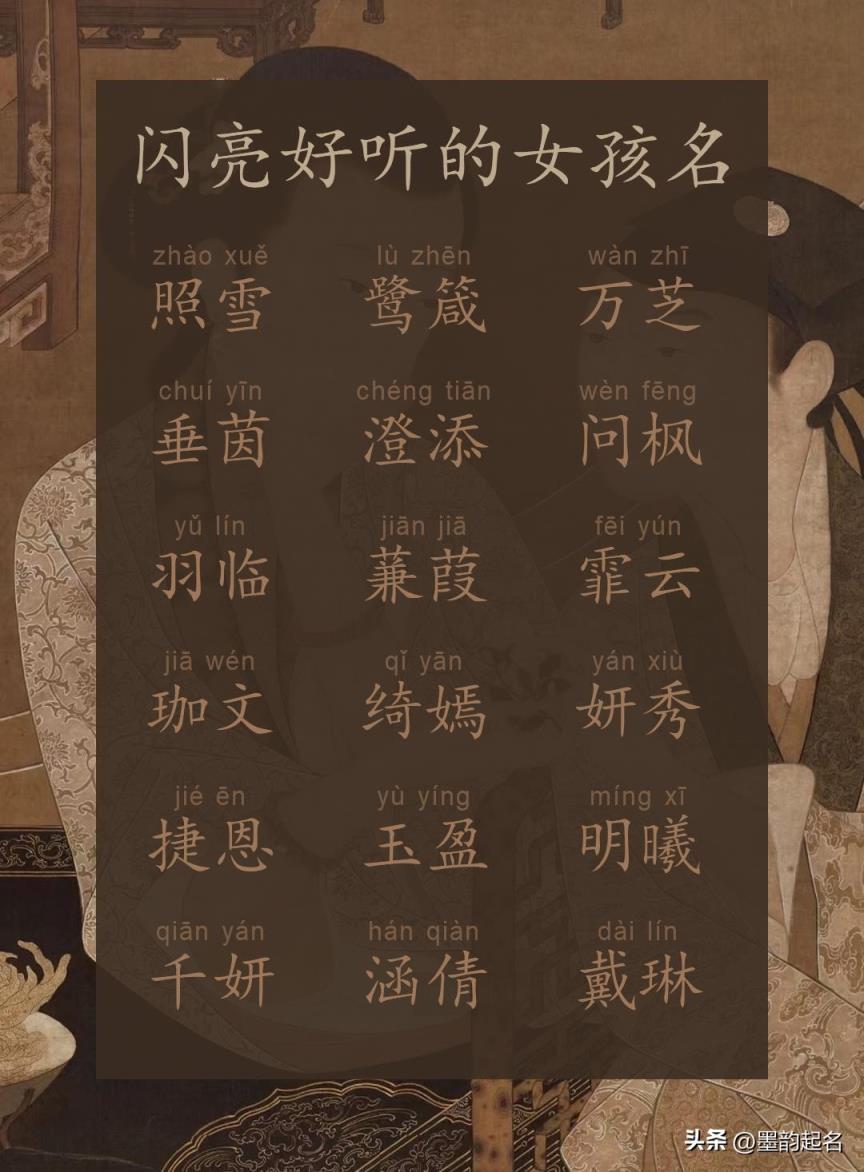 闪亮好听的女孩名
zhào xuě lù zhēn wàn zhī
照雪 鹭箴 万芝
chuí yīn chéng tiān wèn fēng
垂茵 澄添 问枫
yǔ lín jiān jiā fēi yún
羽临 蒹葭 霏云
jiā wén qǐ yān yán xiù
珈文 绮嫣 妍秀
jié ēn yù yíng míng xī
捷恩 玉盈 明曦
qiān yán hán qiàn dài lín
千妍 涵倩 戴琳
头条 @墨韵起名